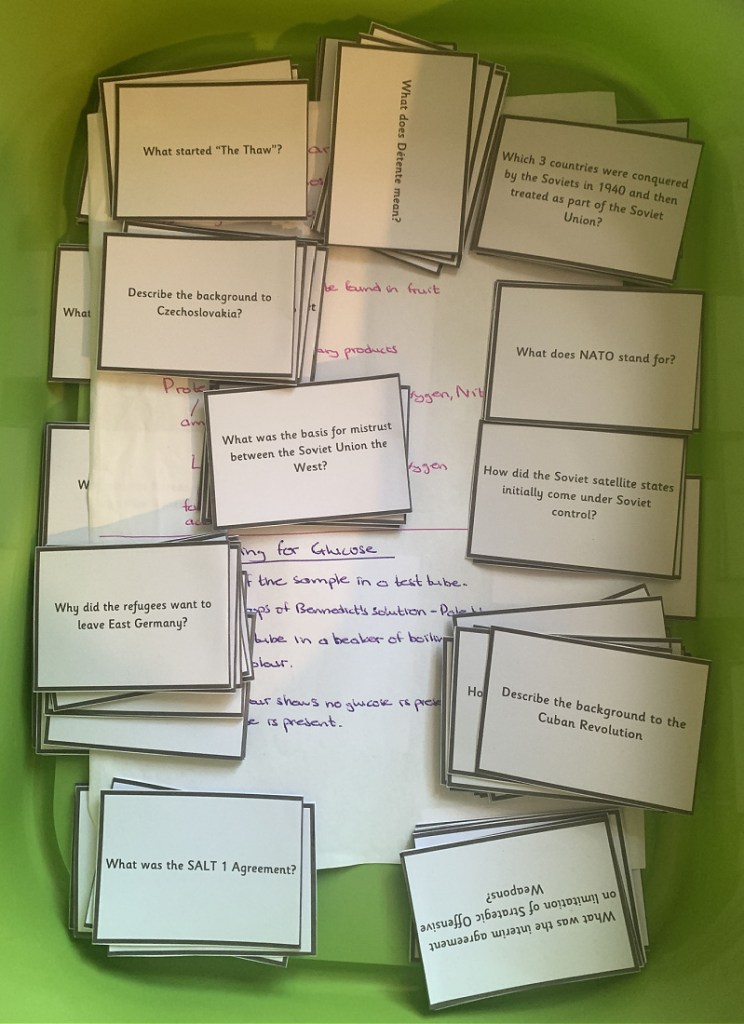 What started "The Thaw"?
What does Détente mean?
Which 3 countries were conquered
by the Soviets in 1940 and then
treated as part of the Soviet
Union?
Describe the background to
Czechoslovakia?
What
be found in fruit
products
What does NATO stand for?
What was the basis for mistrust
between the Soviet Union the
West?
How did the Soviet satellite states
initially come under Soviet
control?
for Glucose
the sample in a test tube.
of Bennedict's solution -
tube in a beaker of
shows no glucose is
is present.
Why did the refugees want to
leave East Germany?
Ho
Describe the background to the
Cuban Revolution
What was the SALT 1 Agreement?
What was the interim agreement
on limitation of Strategic Offensive
Weapons?